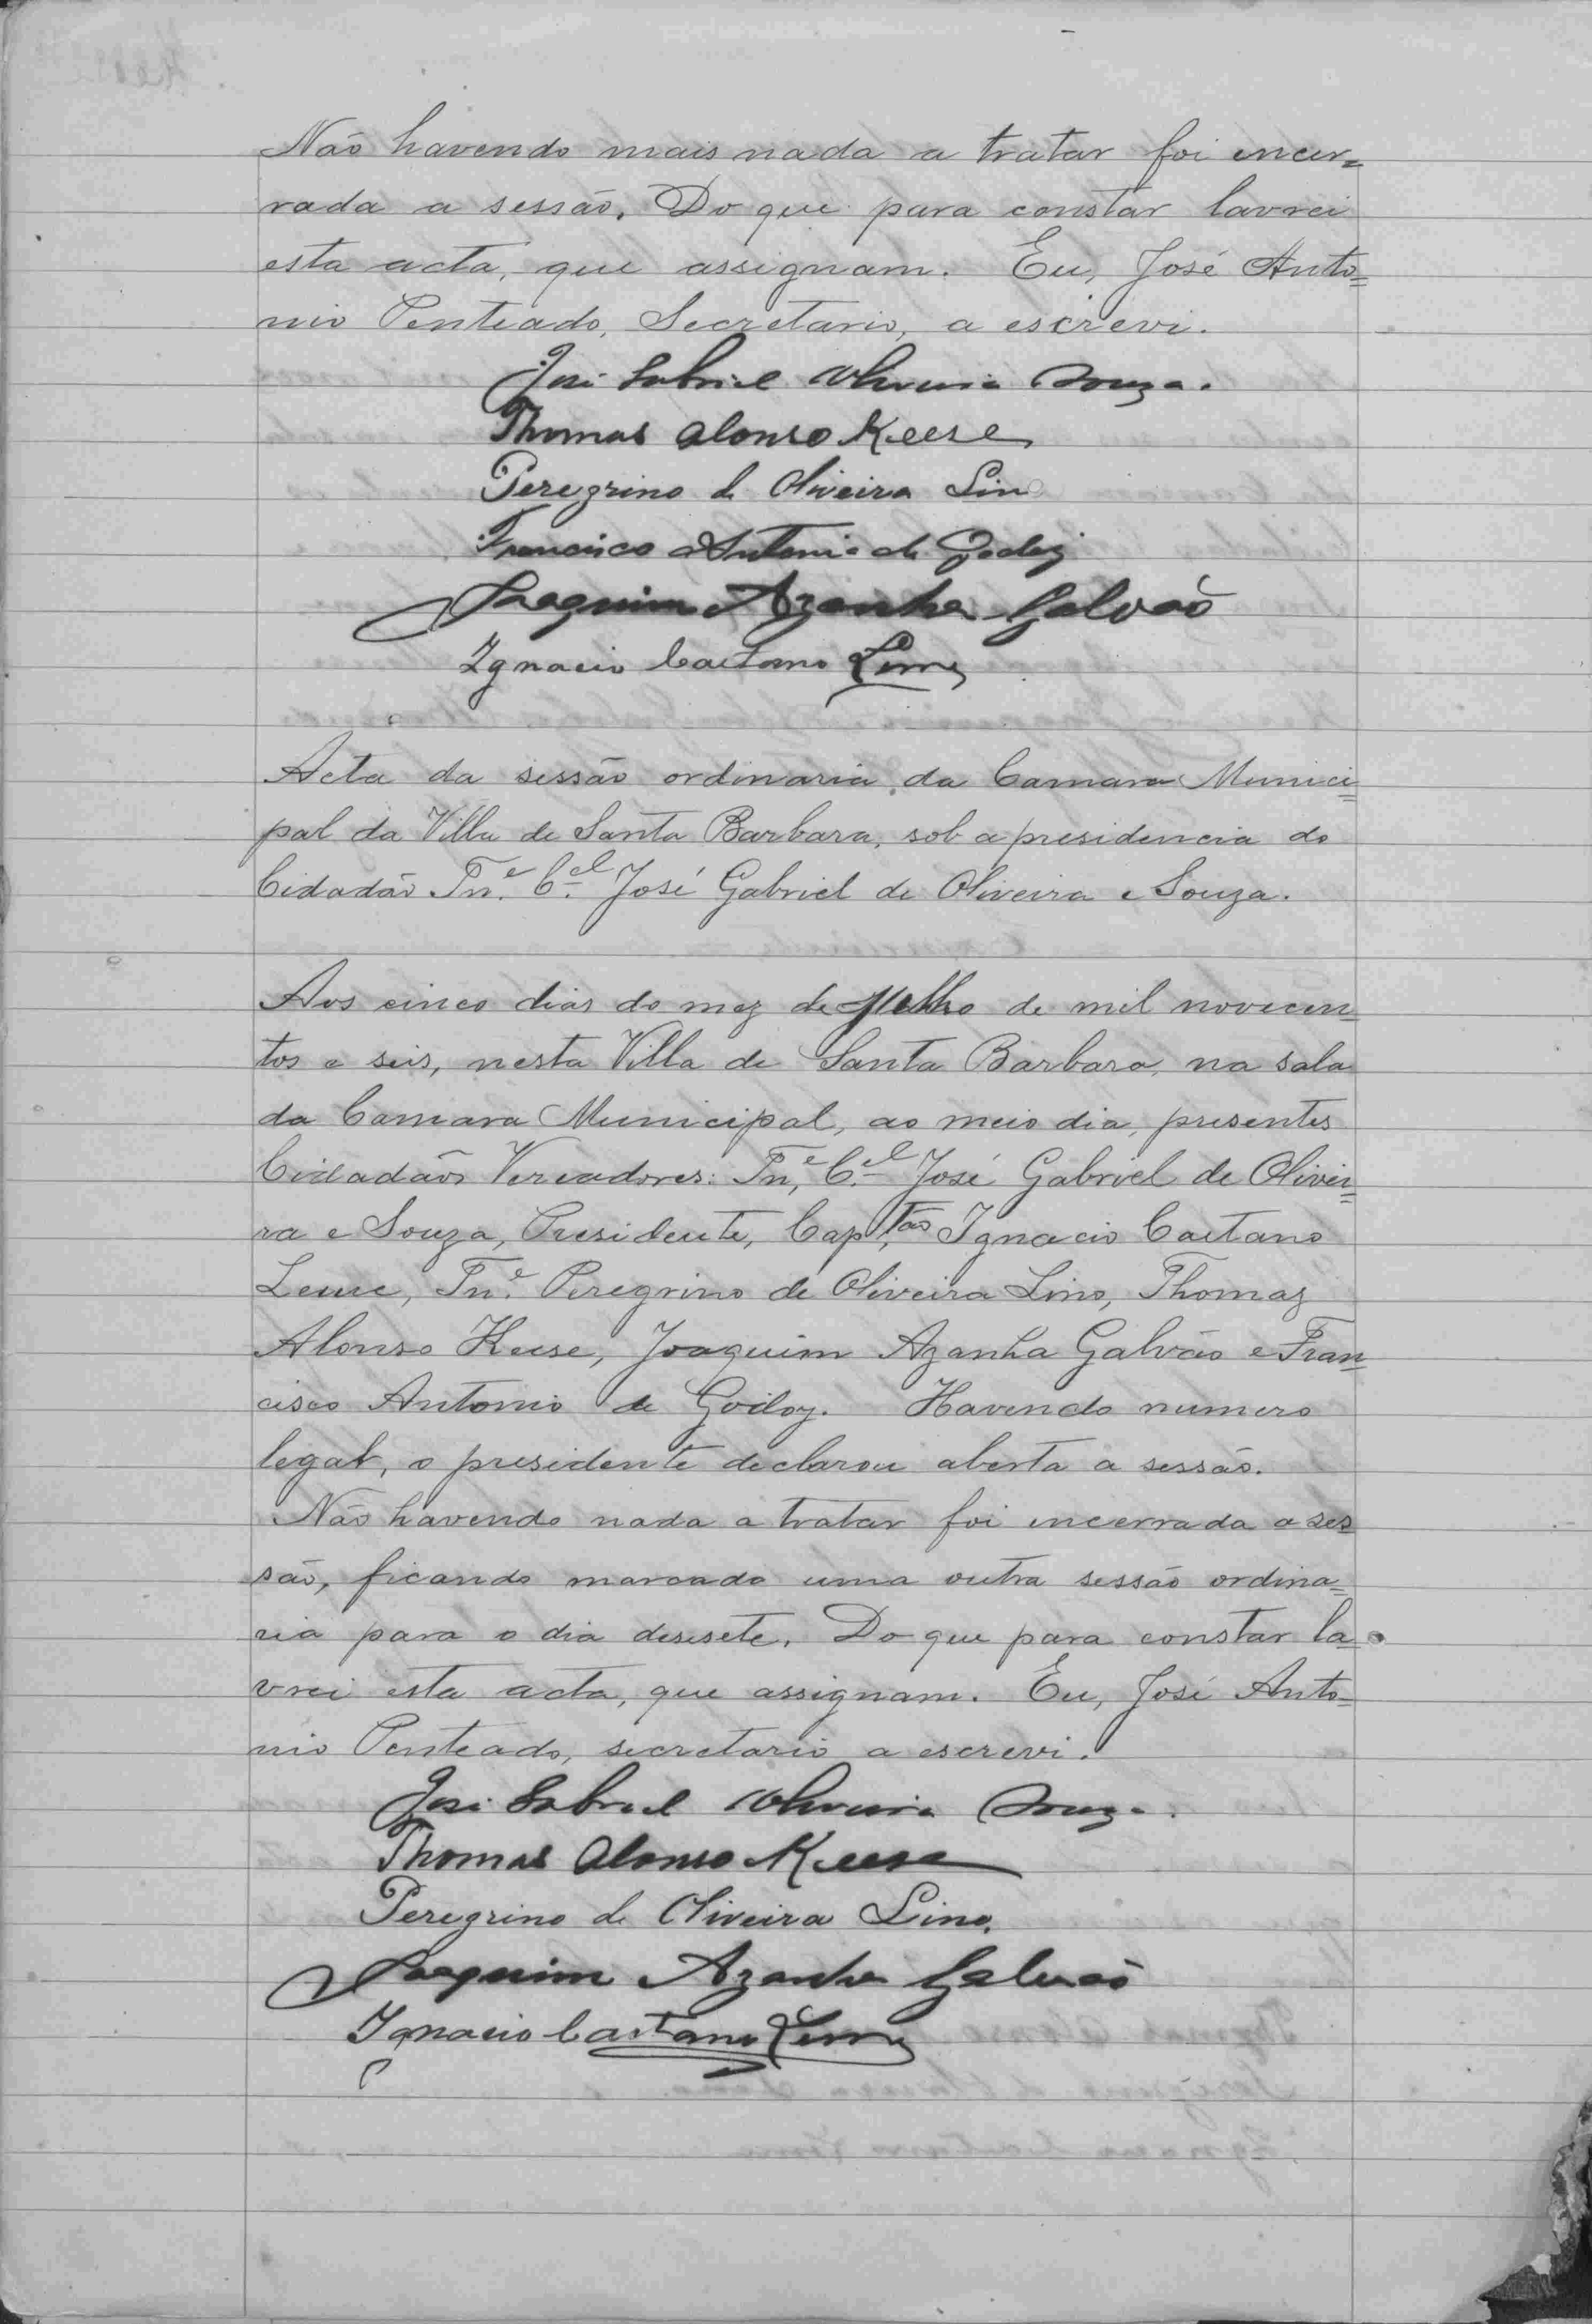 Não havendo mais nada a tratar foi encer=
rada a sessão. Do que para constar lavrei
esta acta, que assignam. Eu, José Anto=
nio Penteado, Secretario, a escrevi.
José Gabriel Oliveira Souza.
Thomas Alonso Keese
Peregrino de Oliveira Lino
Francisco Antonio de Godoy
Joaquim Azanha Galvão
Ignacio Caetano Leme
Acta da sessão ordinaria da Camara Munici=
pal da Villa de Santa Barbara, sob a presidencia do
Cidadão Tn.e C.el José Gabriel de Oliveira e Souza.
Aos cinco dias do mez de Julho de mil novecen=
tos e seis, nesta Villa de Santa Barbara, na sala
da Camara Municipal, ao meio dia, presentes
Cidadãos Vereadores: Tn.e C.el José Gabriel de Olivei=
ra e Souza, Presidente, Cap.tão Ignacio Caetano
Leme, Tn.e Peregrino de Oliveira Lino, Thomaz
Alonso Keese, Joaquim Azanha Galvão e Fran=
cisco Antonio de Godoy. Havendo numero
legal, o presidente declarou aberta a sessão.
Não havendo nada a tratar foi encerrada a ses
são, ficando marcado uma outra sessão ordina=
ria para o dia desesete. Do que para constar la=
vrei esta acta, que assignam. Eu, José Anto=
nio Penteado, secretario a escrevi.
José Gabriel Oliveira Souza.
Thomas Alonso Keese
Peregrino de Oliveira Lino.
Joaquim Azanha Galvão
Ignacio Caetano Leme